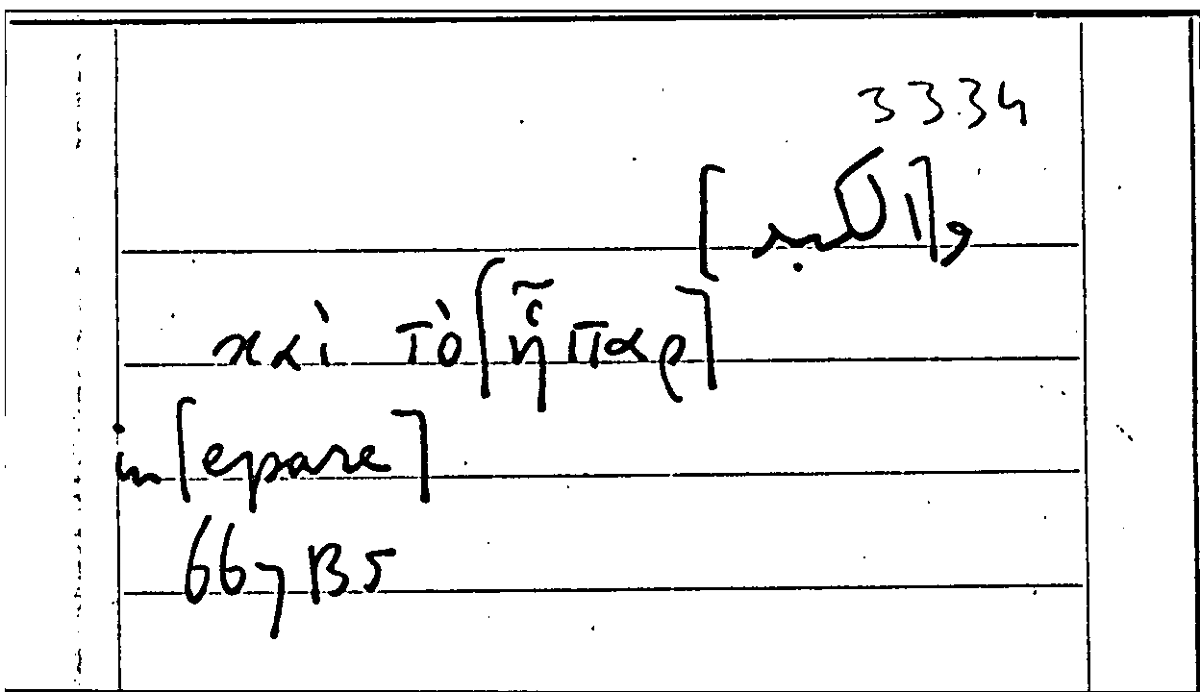 3334
و[الكبد]
καὶ τὸ [ἧπαρ]
in [epare]
667 B5